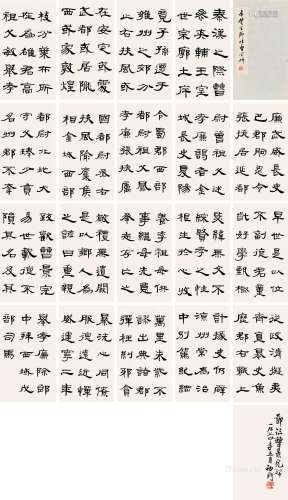 秦漢之際曹
參夾輔王室
世宗廓土斥
竟子孫遷于
雍州之郊分
止右扶風或
在安定或處
武都或居隴
西或家敦煌
枝分葉布所
在為雄君高
祖父敏舉孝
廉武威長史
巴郡朐忍令
張掖居延都
尉曾祖父述
孝廉謁者金
城長史夏陽
令蜀郡西部
都尉祖父鳳
孝廉張掖屬
國都尉丞右
扶風隃麋侯
相金城西部
都尉北地大
守父琫少貫
名州郡不幸
早世是以位
不副德君童
齔好學甄極
毖緯無文不
綜賢孝之性
根生於心收
養季祖母供
事繼母先意
承志存亡之
敬禮無遺闕
是以鄉人為
之諺曰重親
致歡曹景完
易世載德不
隕其名及其
從政清擬夷
齊直慕史魚
歷郡右職上
計掾史仍辟
涼州常為治
中別駕紀綱
萬里朱紫不
謬出典諸郡
彈枉糾邪貪
暴洗心同僚
服德遠近憚
威建寧二年
舉孝廉除郎
中拜西域戊
部司馬
節臨曹景完碑